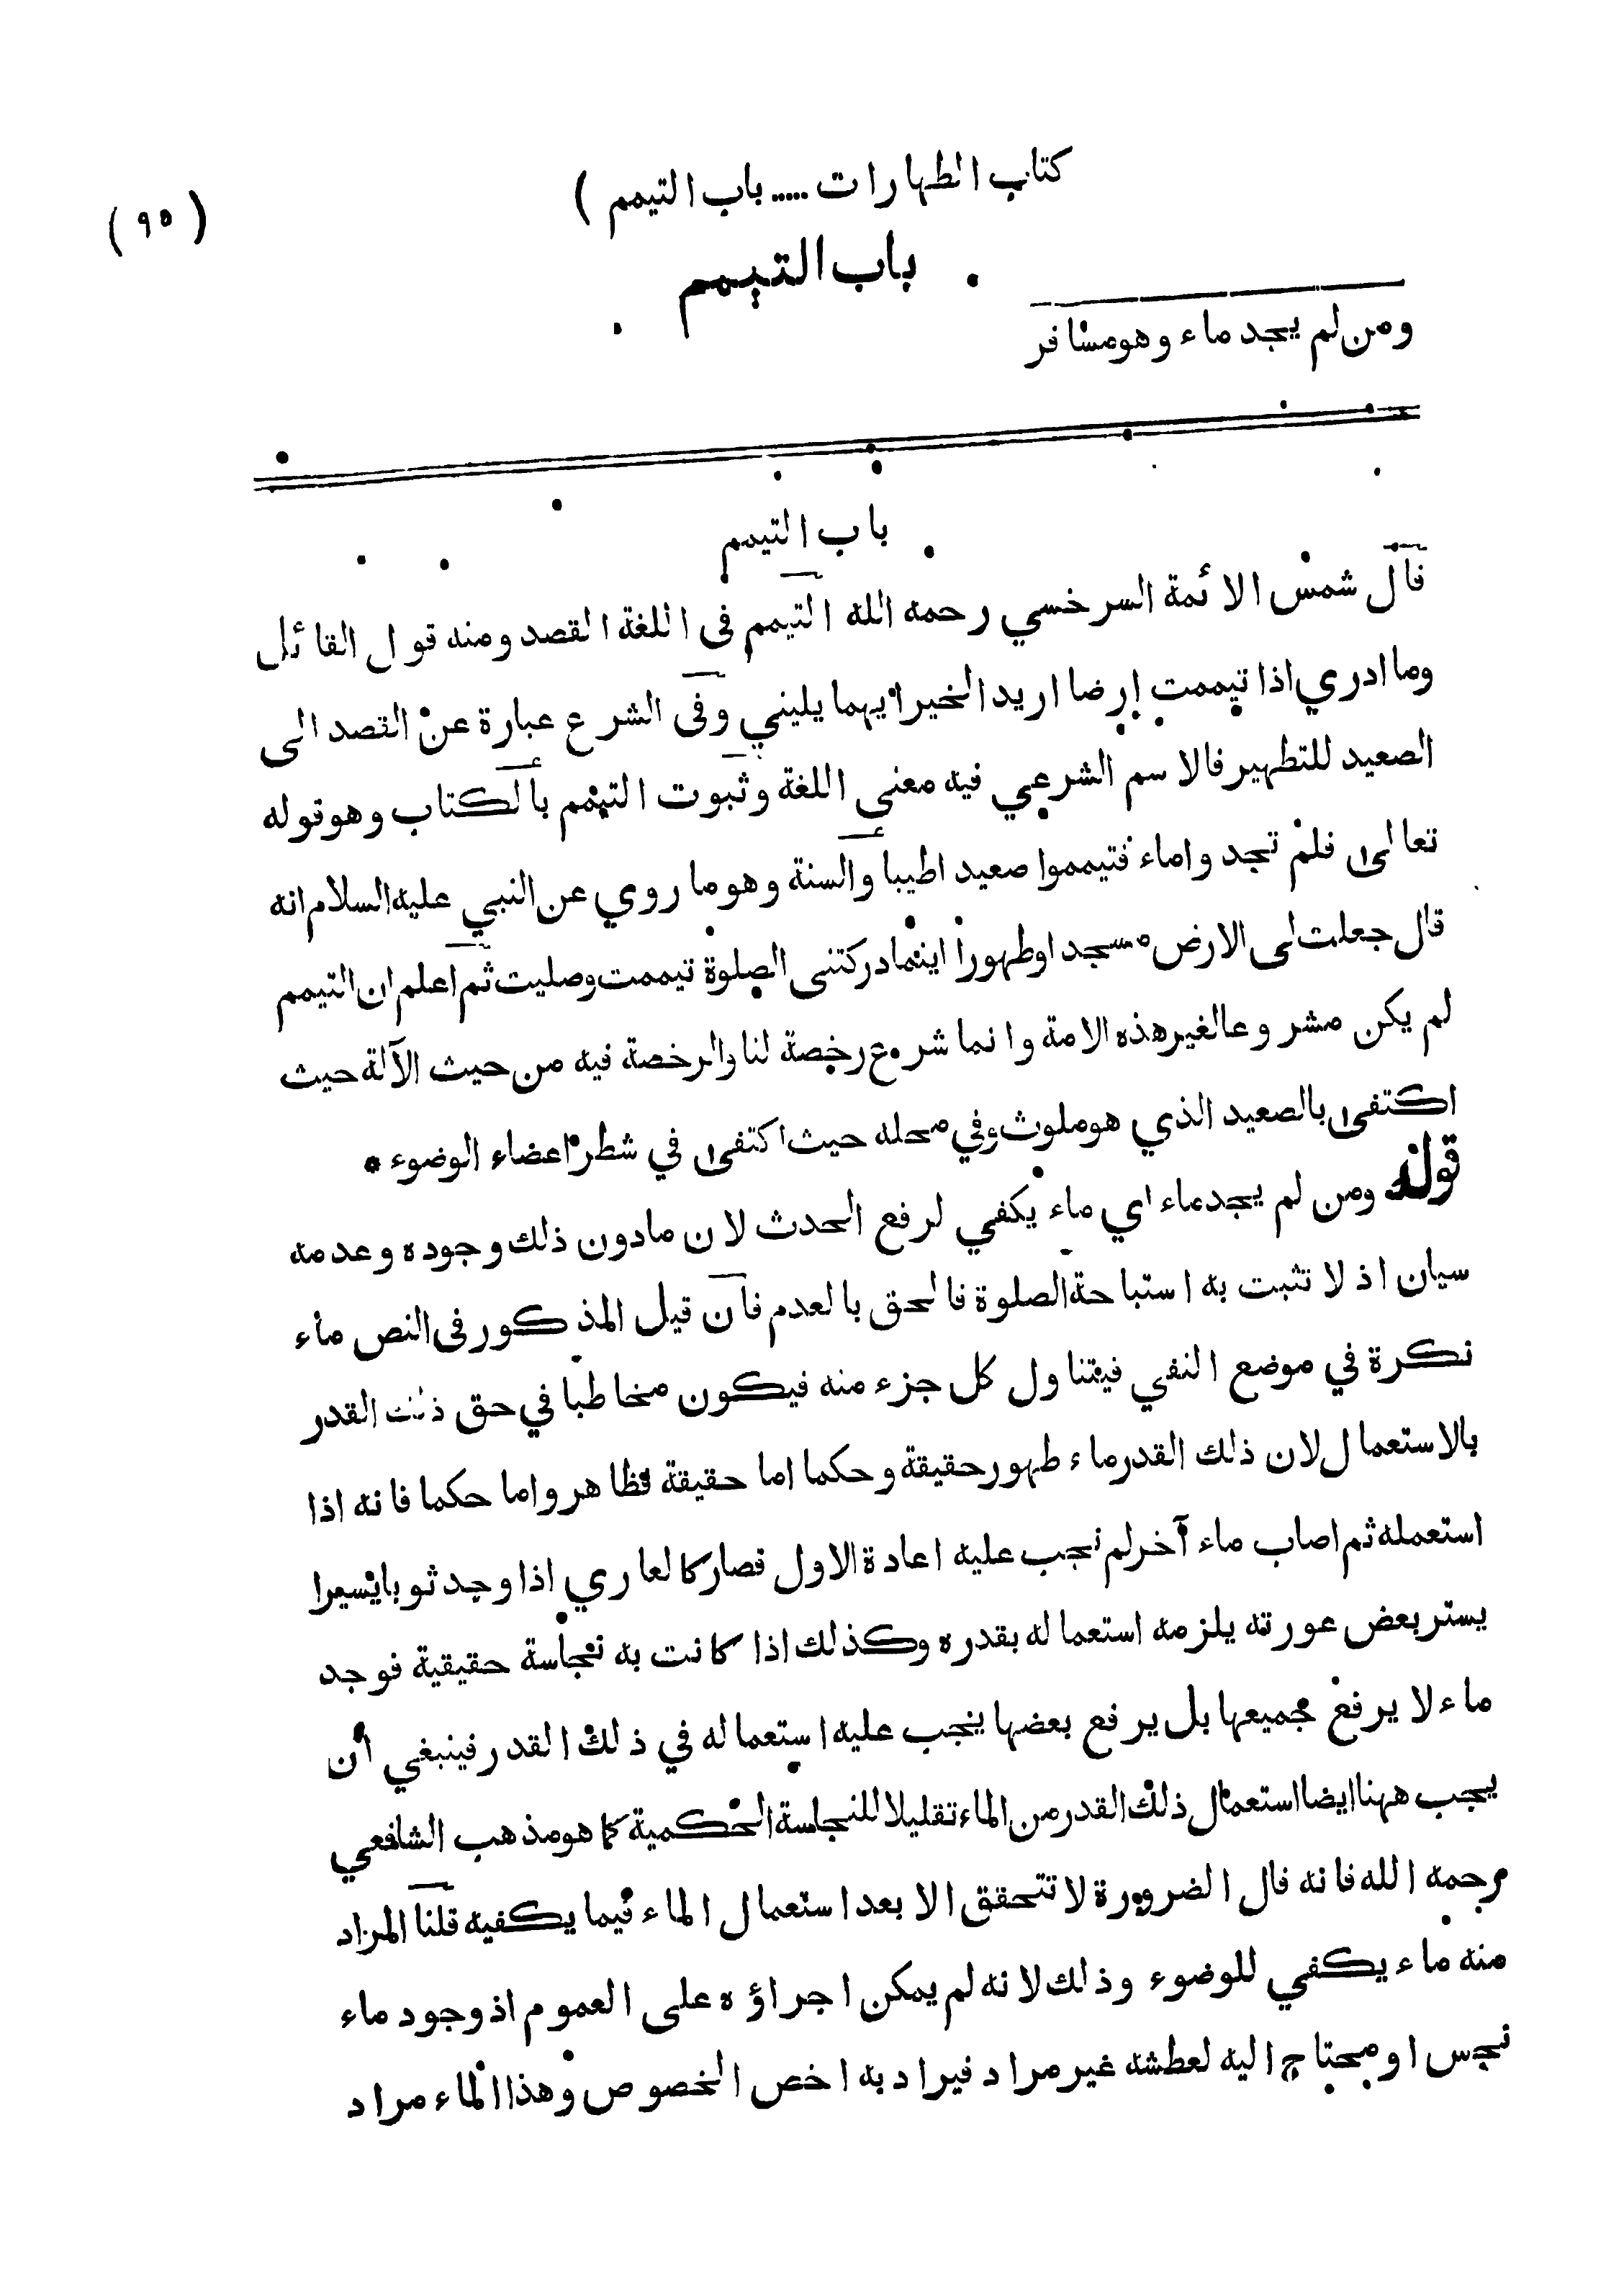 كتاب الطهارات ..... باب التيمم )
( ٩٥ )
باب التيمم
ومن لم يجد ماء وهو مسافر
باب التيمم
قال شمس الائمة السرخسي رحمه الله التيمم فى اللغة القصد ومنه قول القائل
وما ادري اذا تيممت ارضا اريد الخير ايهما يليني وفى الشرع عبارة عن القصد الى
الصعيد للتطهير فالاسم الشرعي فيه معنى اللغة وثبوت التيمم بالكتاب وهو قوله
تعالى فلم تجدوا ماء فتيمموا صعيدا طيبا والسنة وهو ما روي عن النبي عليه السلام انه
قال جعلت لى الارض مسجدا وطهورا اينما دركتنى الصلوة تيممت وصليت ثم اعلم ان التيمم
لم يكن مشروعا لغير هذه الامة وانما شرع رخصة لنا والرخصة فيه من حيث الآلة حيث
اكتفى بالصعيد الذي هو ملوث وفي محله حيث اكتفى في شطر اعضاء الوضوء *
قوله ومن لم يجد ماء اي ماء يكفي لرفع الحدث لان مادون ذلك وجوده وعدمه
سيان اذ لا تثبت به استباحة الصلوة فالحق بالعدم فان قيل المذكور فى النص ماء
نكرة في موضع النفي فيتناول كل جزء منه فيكون مخاطبا في حق ذلك القدر
بالاستعمال لان ذلك القدر ماء طهور حقيقة وحكما اما حقيقة فظاهر واما حكما فانه اذا
استعمله ثم اصاب ماء آخر لم تجب عليه اعادة الاول فصار كالعاري اذا وجد ثوبا يسيرا
يستر بعض عورته يلزمه استعماله بقدره وكذلك اذا كانت به نجاسة حقيقية فوجد
ماء لا يرفع جميعها بل يرفع بعضها يجب عليه استعماله في ذلك القدر فينبغي ان
يجب ههنا ايضا استعمال ذلك القدر من الماء تقليلا للنجاسة الحكمية كما هو مذهب الشافعي
رحمه الله فانه قال الضرورة لا تتحقق الا بعد استعمال الماء فيما يكفيه قلنا المراد
منه ماء يكفي للوضوء وذلك لانه لم يمكن اجراؤه على العموم اذ وجود ماء
نجس او محتاج اليه لعطشه غير مراد فيراد به اخص الخصوص وهذا الماء مراد